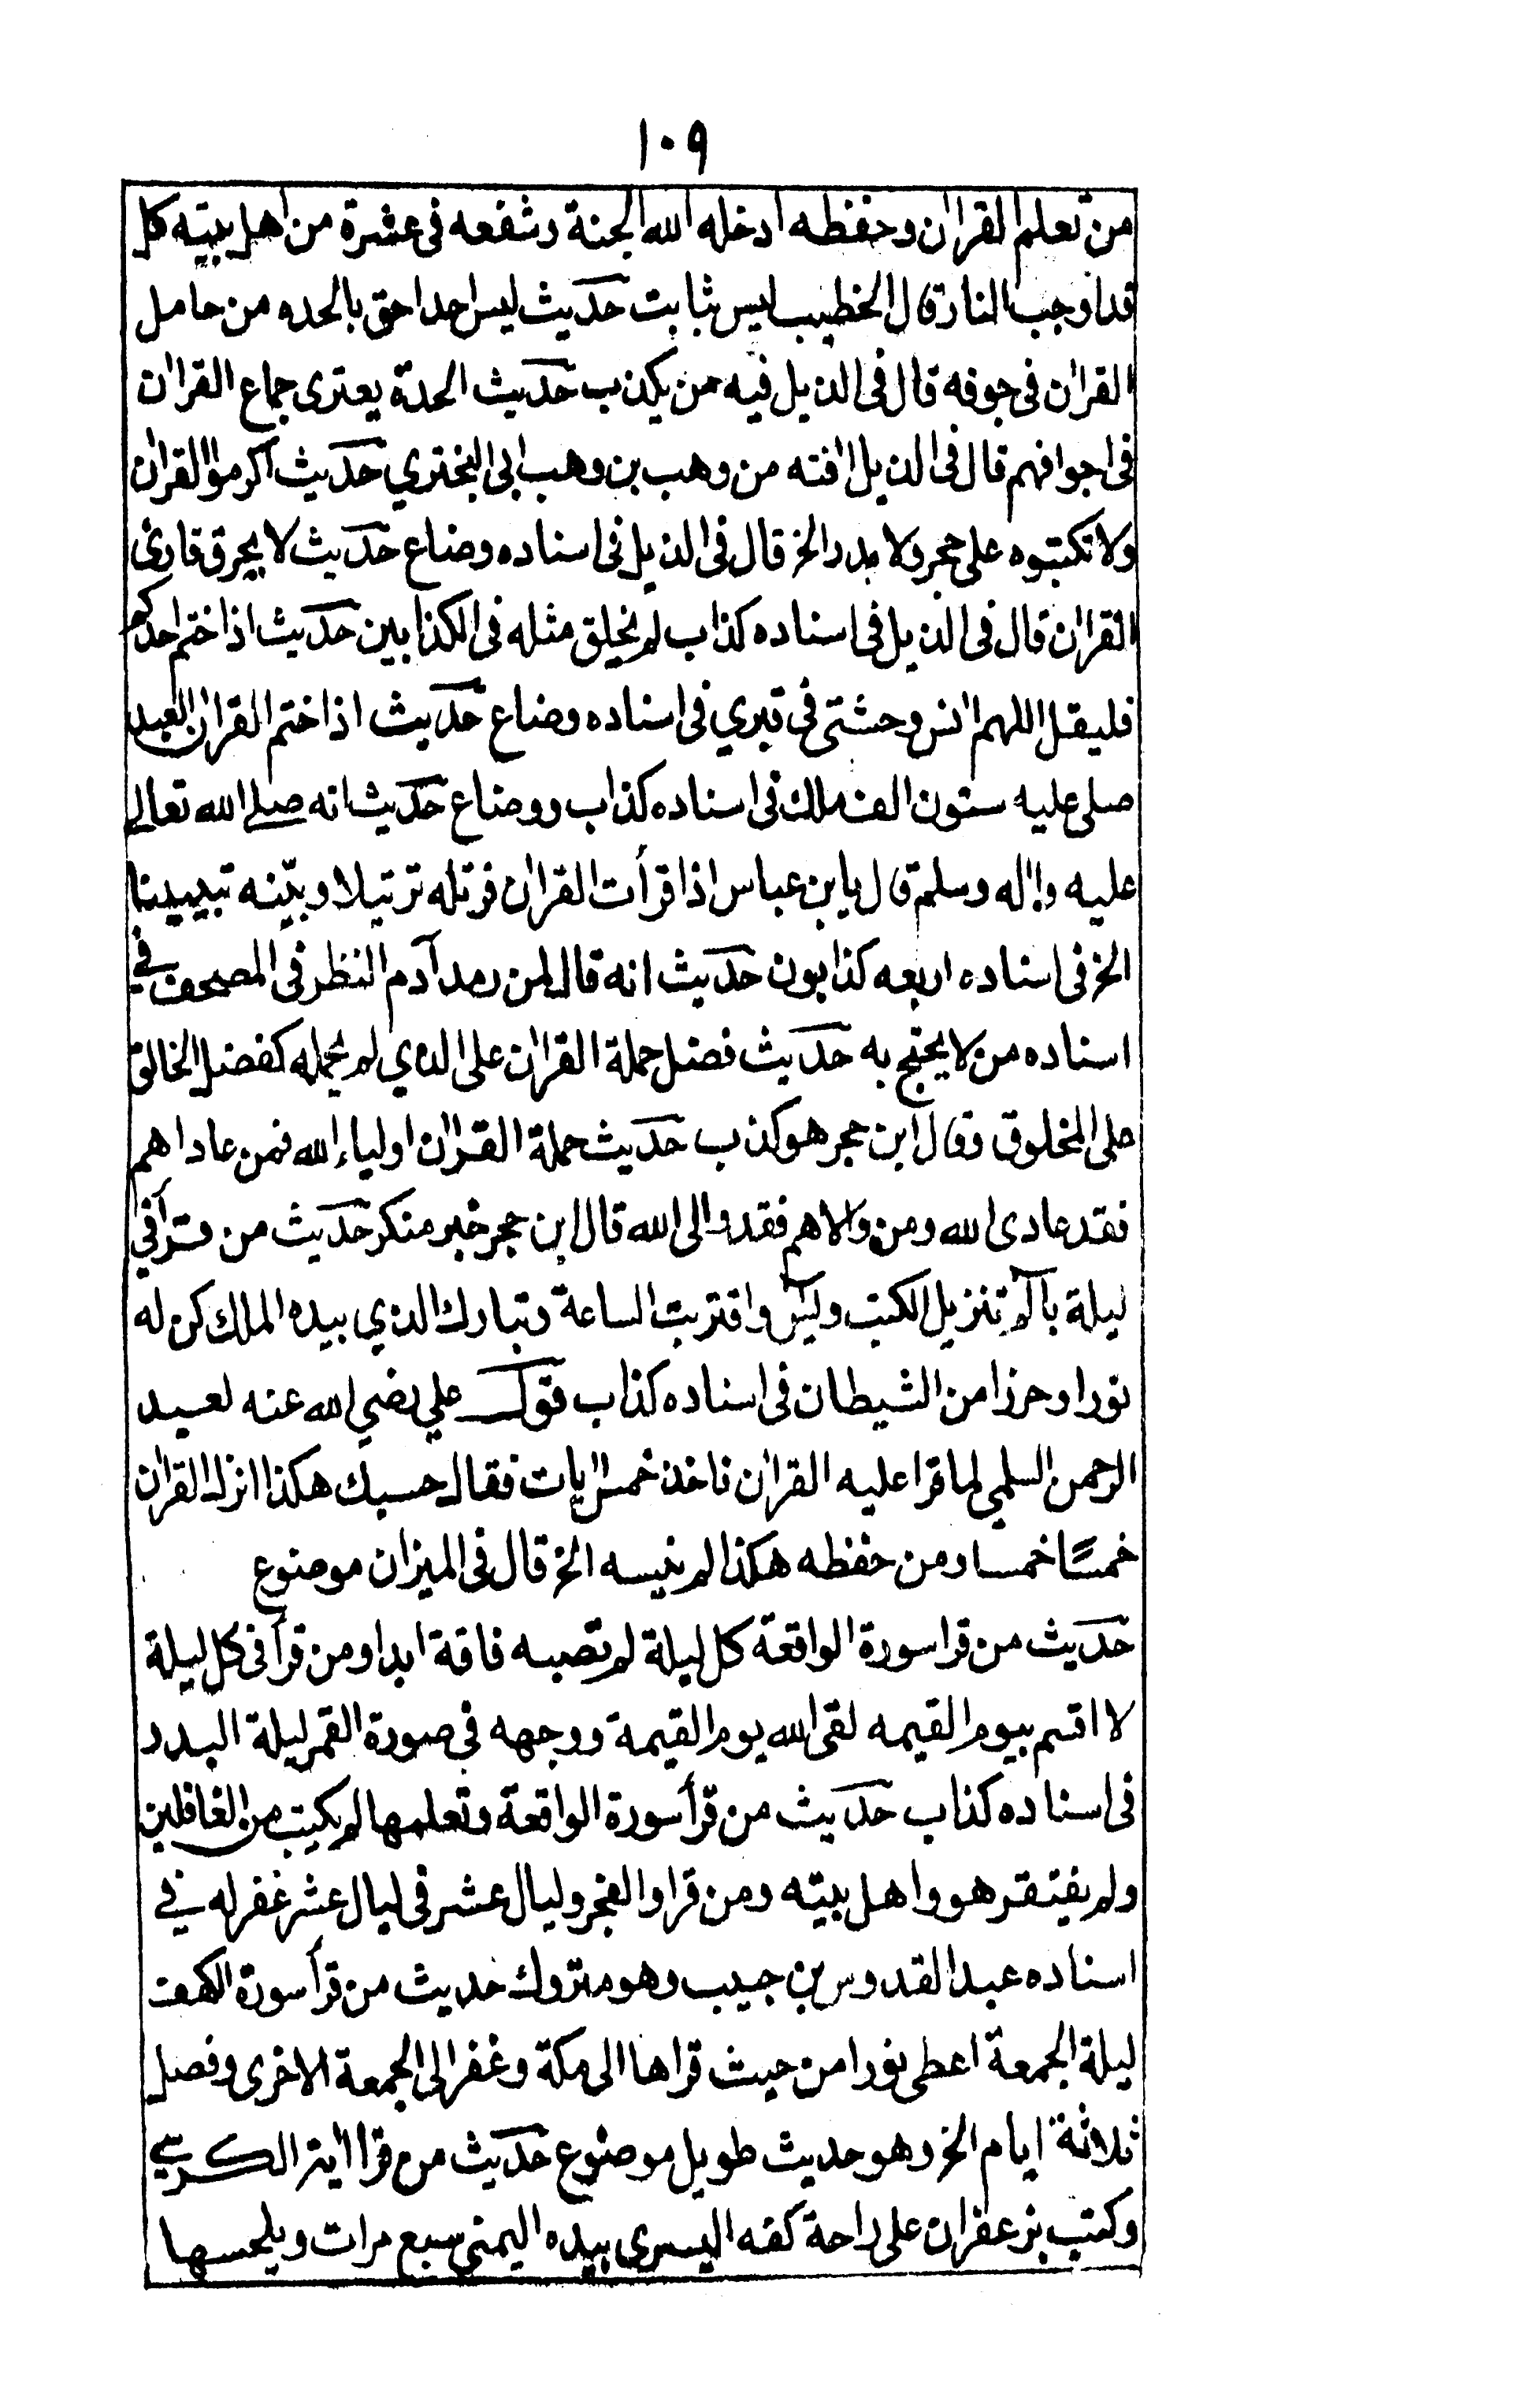 ١٠٩
من تعلم القراٰن وحفظه ادخله الله الجنة وشفعه فى عشرة من اهل بيته كل
قد اوجب النار قال الخطيب ليس بثابت حديث ليس احد احق بالحده من حامل
القراٰن فى جوفه قال فى الذيل فيه من يكذب حديث الحدة يعترى جماع القراٰن
فى اجوافهم قال فى الذيل اٰفته من وهب بن وهب ابى البختري حديث اكرموا القراٰن
ولا تكتبوه على حجر ولا مدر الخ قال فى الذيل فى اسناده وضاع حديث لا يحرق قارئ
القراٰن قال فى الذيل فى اسناده كذاب لم يخلق مثله فى الكذابين حديث اذا ختم احدكم
فليقل اللهم اٰنس وحشتى فى قبري فى اسناده وضاع حديث اذا ختم القراٰن العبد
صلى عليه ستون الف ملك فى اسناده كذاب ووضاع حديث انه صلى الله تعالى
عليه واٰله وسلم قال يابن عباس اذا قرأت القراٰن فرتله ترتيلا وبيّنه تبيينا
الخ فى اسناده اربعه كذابون حديث انه قال لمن رمد آدم النظر فى المصحف في
اسناده من لا يحتج به حديث فضل حملة القراٰن على الذي لم يحمله كفضل الخالق
على المخلوق وقال ابن حجر هو كذب حديث حملة القراٰن اولياء الله فمن عاداهم
فقد عادى الله ومن والاهم فقد والى الله قال ابن حجر خبر منكر حديث من قرأ في
ليلة بآلم تنزيل الكتب ويٰس واقتربت الساعة وتبارك الذي بيده الملك كن له
نورا وحرزا من الشيطان فى اسناده كذاب قول علي رضي الله عنه لعبد
الرحمن السلمي لما قرا عليه القراٰن فاخذ خمس اٰيات فقال حسبك هكذا انزل القراٰن
خمسًا خمسا ومن حفظه هكذا لم ينسه الخ قال فى الميزان موضوع
حديث من قرا سورة الواقعة كل ليلة لم تصبه فاقة ابدا ومن قرأ فى كل ليلة
لا اقسم بيوم القيمه لقى الله يوم القيمة ووجهه فى صورة القمر ليلة البدر
فى اسناده كذاب حديث من قرأ سورة الواقعة وتعلمها لم يكتب من الغافلين
ولم يفتقر هو واهل بيته ومن قرا والفجر وليال عشر فى ليال عشر غفر له في
اسناده عبد القدوس بن حبيب وهو متروك حديث من قرأ سورة الكهف
ليلة الجمعة اعطى نورا من حيث قراها الى مكة وغفر الى الجمعة الاخرى وفضل
ثلاثة ايام الخ وهو حديث طويل موضوع حديث من قرا اٰية الكرسي
وكتب بزعفران على راحة كفه اليسرى بيده اليمنى سبع مرات ويلحسها